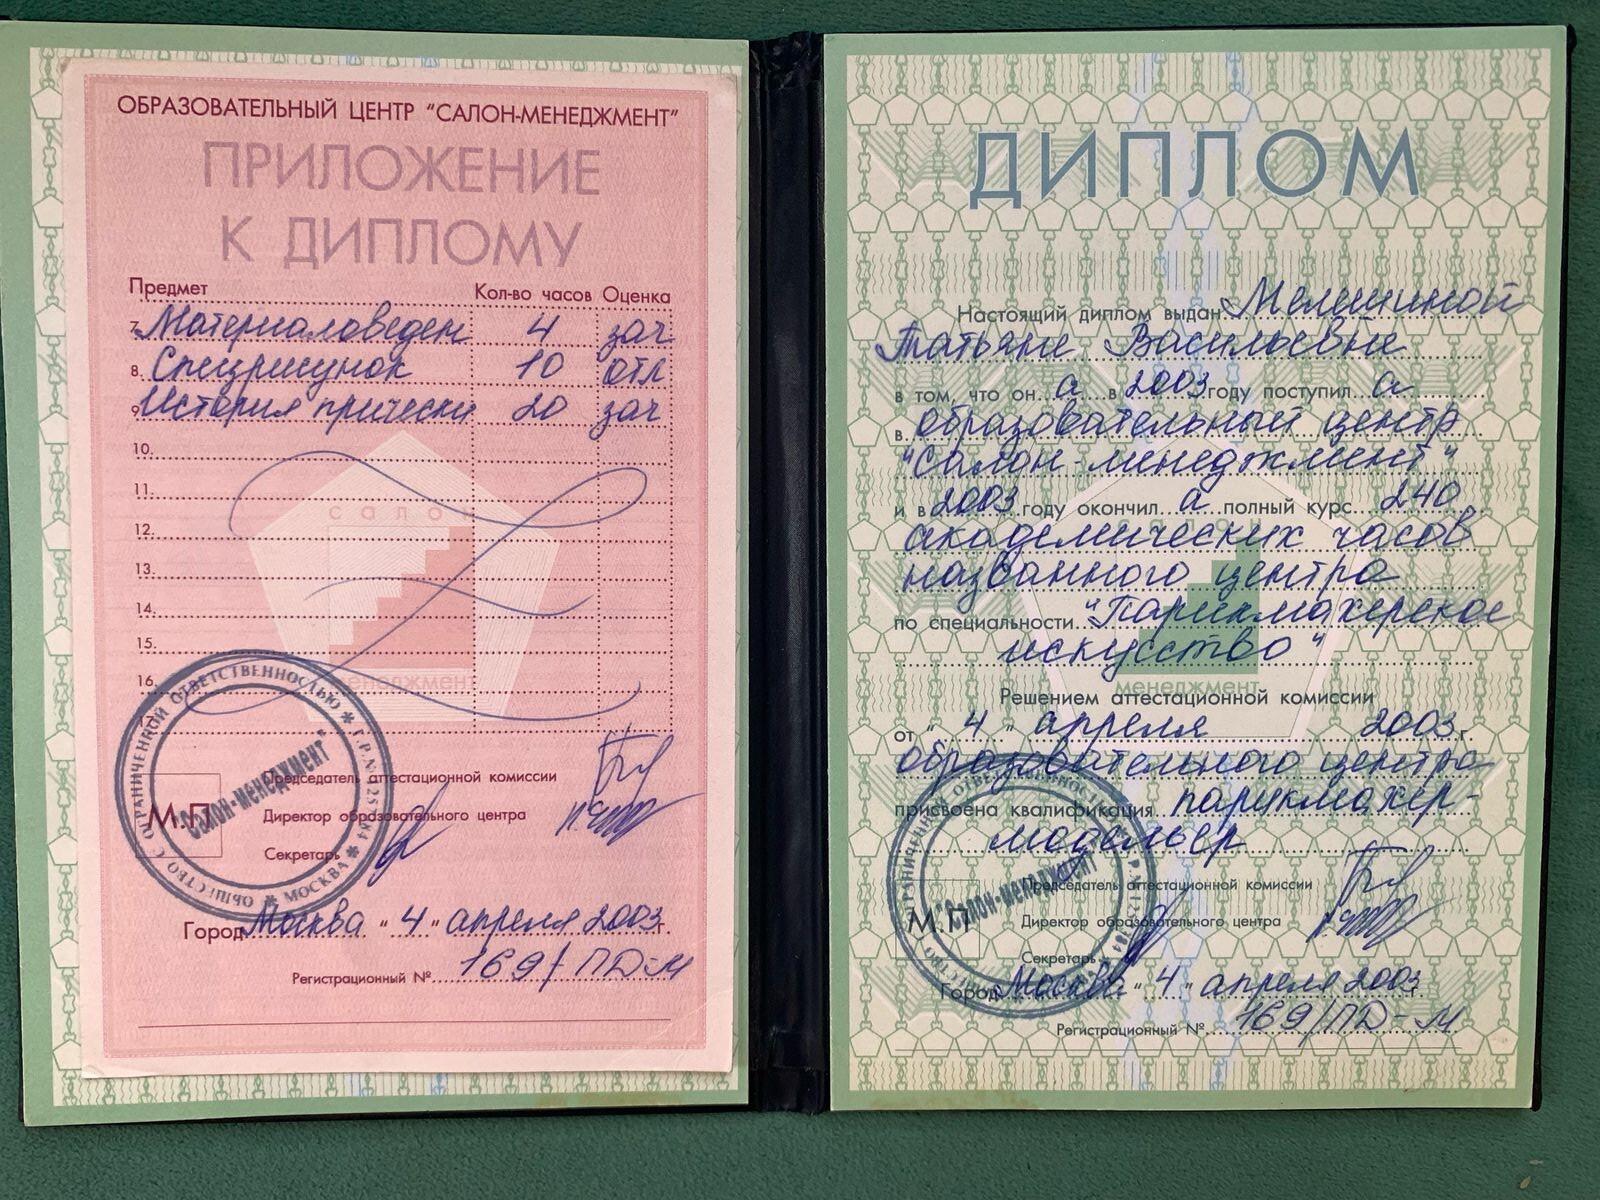 ОБРАЗОВАТЕЛЬНЫЙ ЦЕНТР "САЛОН-МЕНЕДЖМЕНТ"
ПРИЛОЖЕНИЕ
К ДИПЛОМУ
Предмет Кол-во часов Оценка
7. Материаловеден 4 зач
8. Спецрисунок 10 отл
9. История прически 20 зач
10.
11.
салон
12.
13.
14.
15.
16.
менеджмент
17.
ОБЩЕСТВО С ОГРАНИЧЕННОЙ ОТВЕТСТВЕННОСТЬЮ * МОСКВА *
"Салон-менеджмент"
Председатель аттестационной комиссии
М.П
Директор образовательного центра
Секретарь
Город Москва "4" апреля 2003г.
Регистрационный № 169/ПД-М
ДИПЛОМ
Настоящий диплом выдан Мелшиной
Татьяне Васильевне
в том, что он а в 2003 году поступил а
в образовательный центр
"Салон-менеджмент"
и в 2003 году окончил а полный курс 240
академических часов
названного центра
по специальности "Парикмахерское
искусство"
менеджмент
Решением аттестационной комиссии
от "4" апреля 2003г.
образовательного центра
присвоена квалификация парикмахер-
модельер
"Салон-менеджмент"
Председатель аттестационной комиссии
М.П
Директор образовательного центра
Секретарь
Город Москва "4" апреля 2003г.
Регистрационный № 169/ПД-М